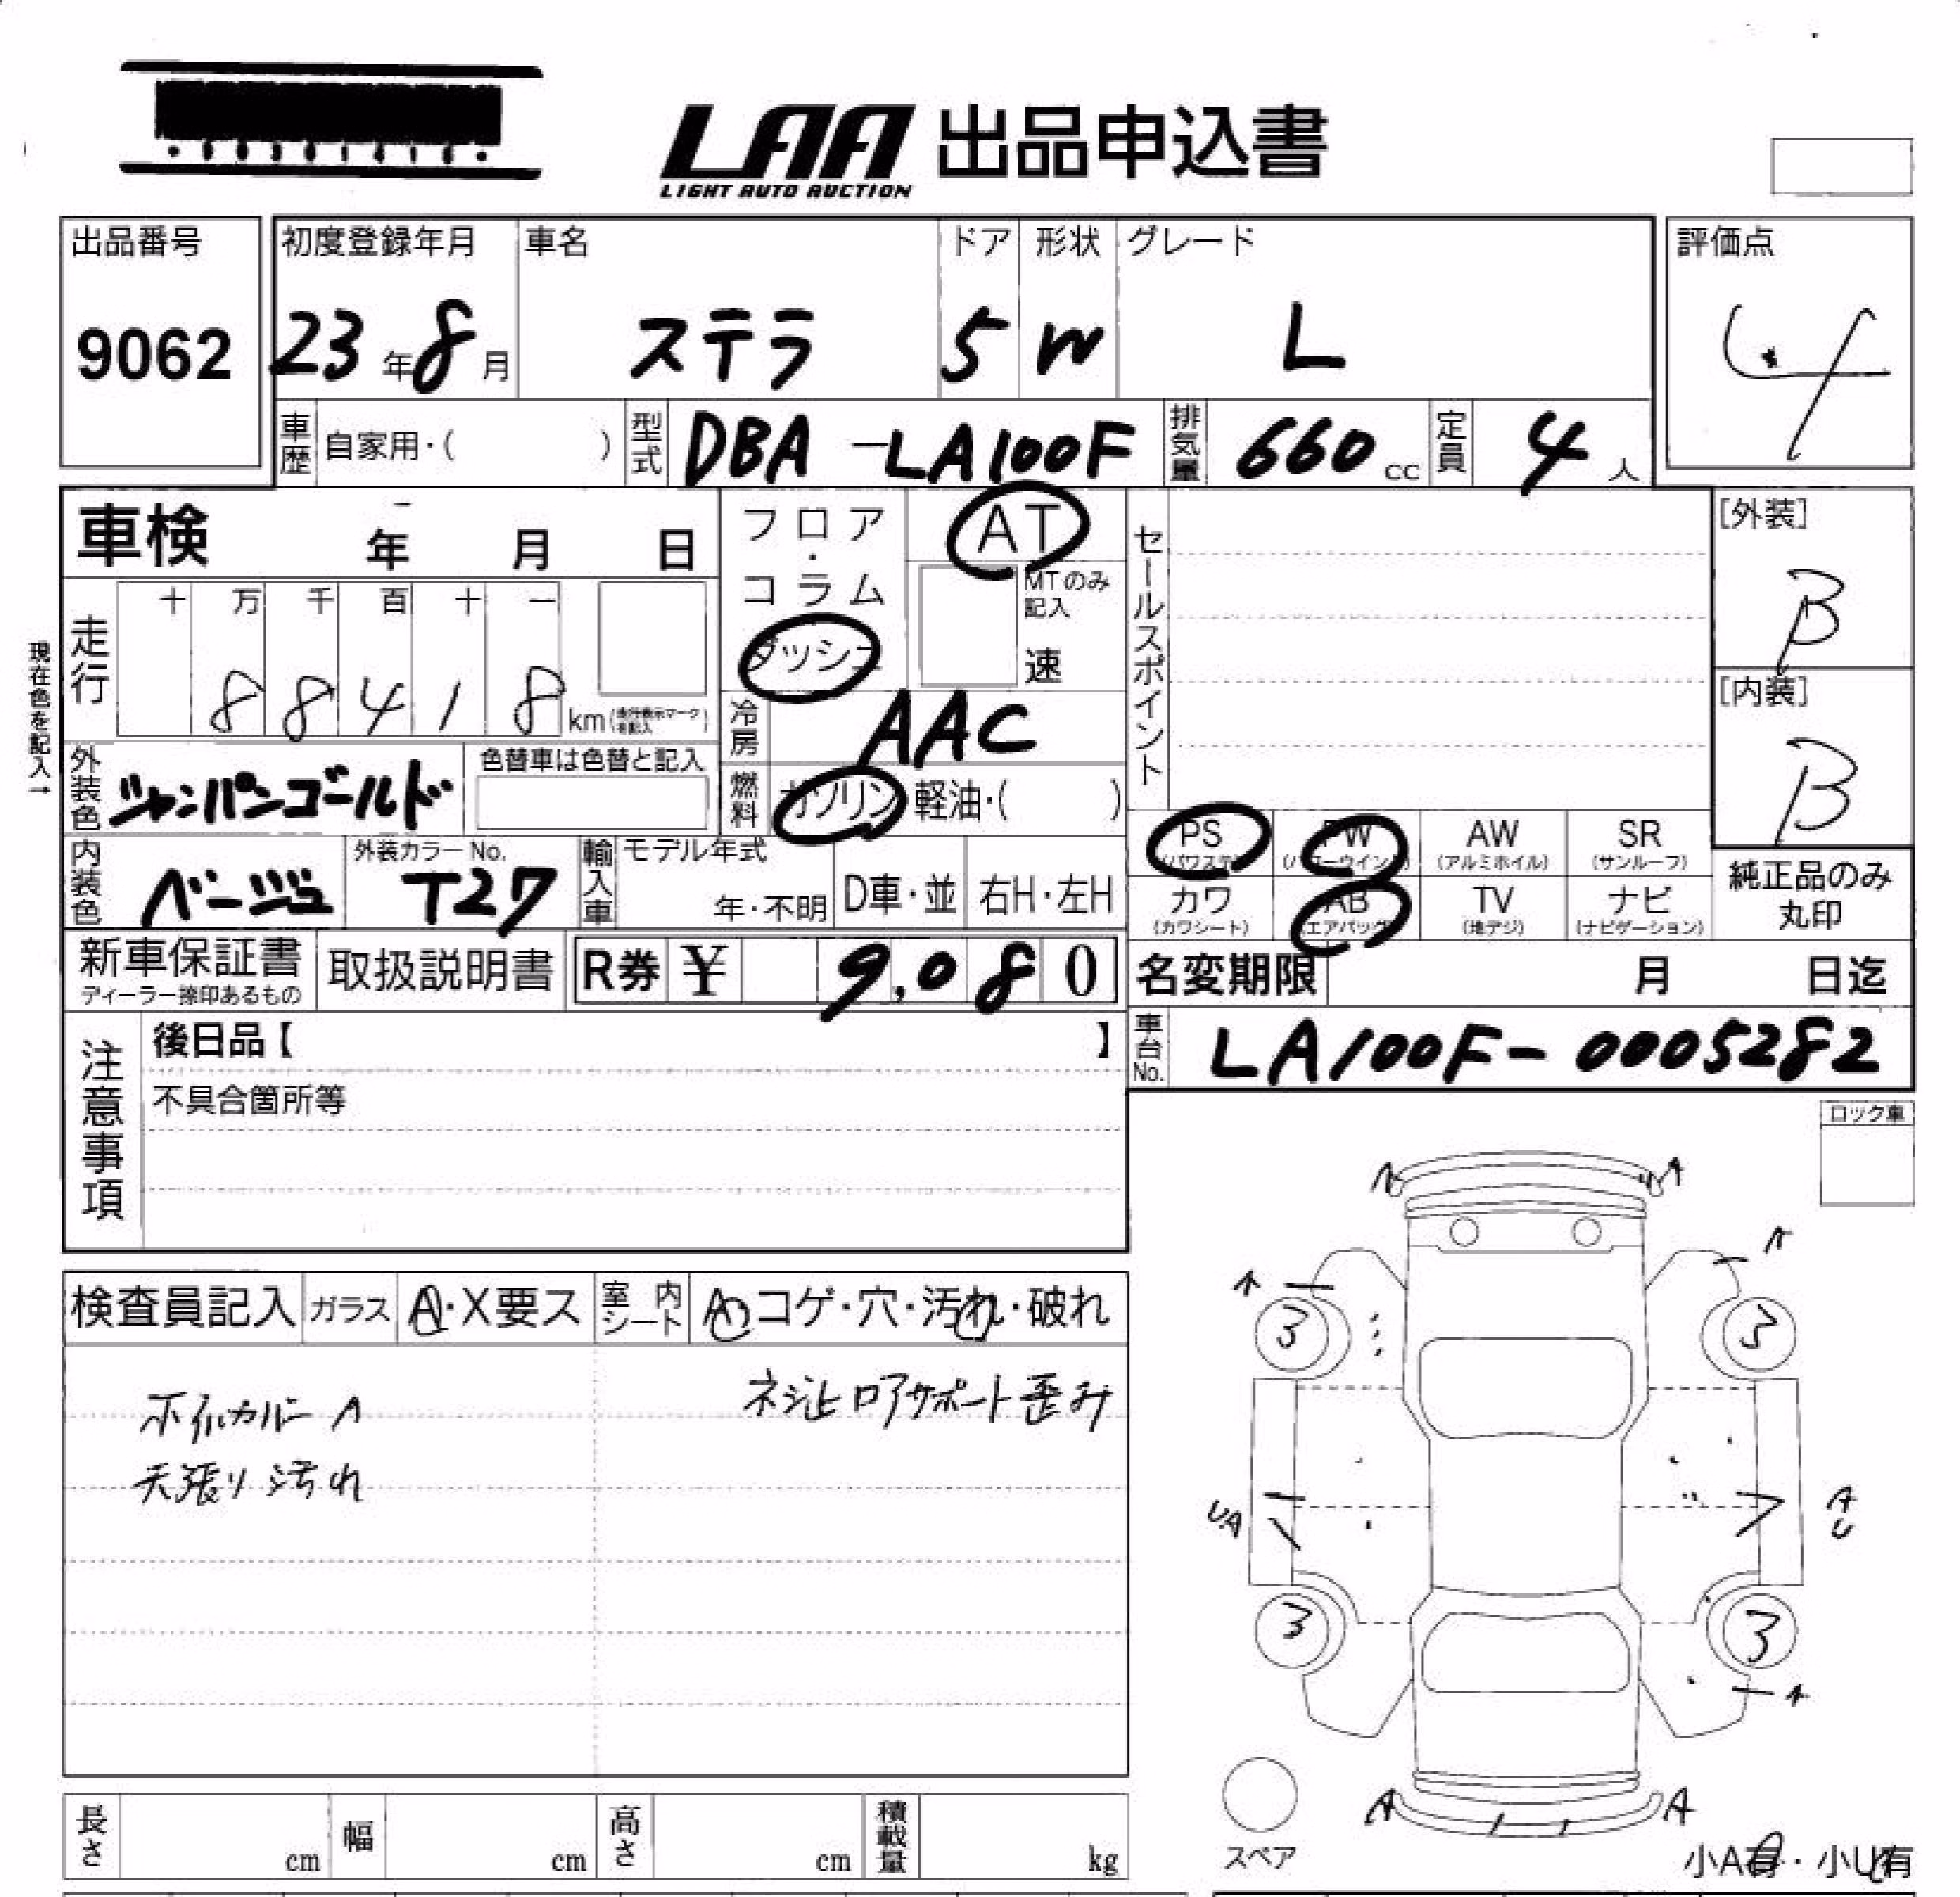 LAA 出品申込書
LIGHT AUTO AUCTION
出品番号 初度登録年月 車名 ドア 形状 グレード 評価点
9062 23年8月 ステラ 5 W L 4
車歴 自家用・( ) 型式 DBA-LA100F 排気量 660cc 定員 4人
車検 年 月 日
フロア・コラム ダッシュ AT
MTのみ記入 速
セールスポイント
[外装] B
現在色を記入→
走行 十 万 千 百 十 一
8 8 4 1 8 km(走行表示マークを記入)
[内装] B
冷房 AAC
外装色 シャンパンゴールド 色替車は色替と記入
燃料 ガソリン 軽油・( )
PS (パワステ) PW (パワーウインド) AW (アルミホイル) SR (サンルーフ)
内装色 ベージュ 外装カラーNo. T27 輸入車 モデル年式 年・不明 D車・並 右H・左H
カワ (カワシート) AB (エアバッグ) TV (地デジ) ナビ (ナビゲーション)
純正品のみ
丸印
新車保証書 取扱説明書 R券 ¥ 9,080
ディーラー捺印あるもの
名変期限 月 日迄
注意事項 後日品【 】
車台No. LA100F-0005282
不具合箇所等
ロック車
A A
A A
検査員記入 ガラス A・X要ス 室内シート A・コゲ・穴・汚れ・破れ
3 3
ホイルカバー A ネジ止ロアサポート歪み
天張り汚れ
U.A A U
3 3
A
A A
スペア
長さ cm 幅 cm 高さ cm 積載量 kg
小A有・小U有